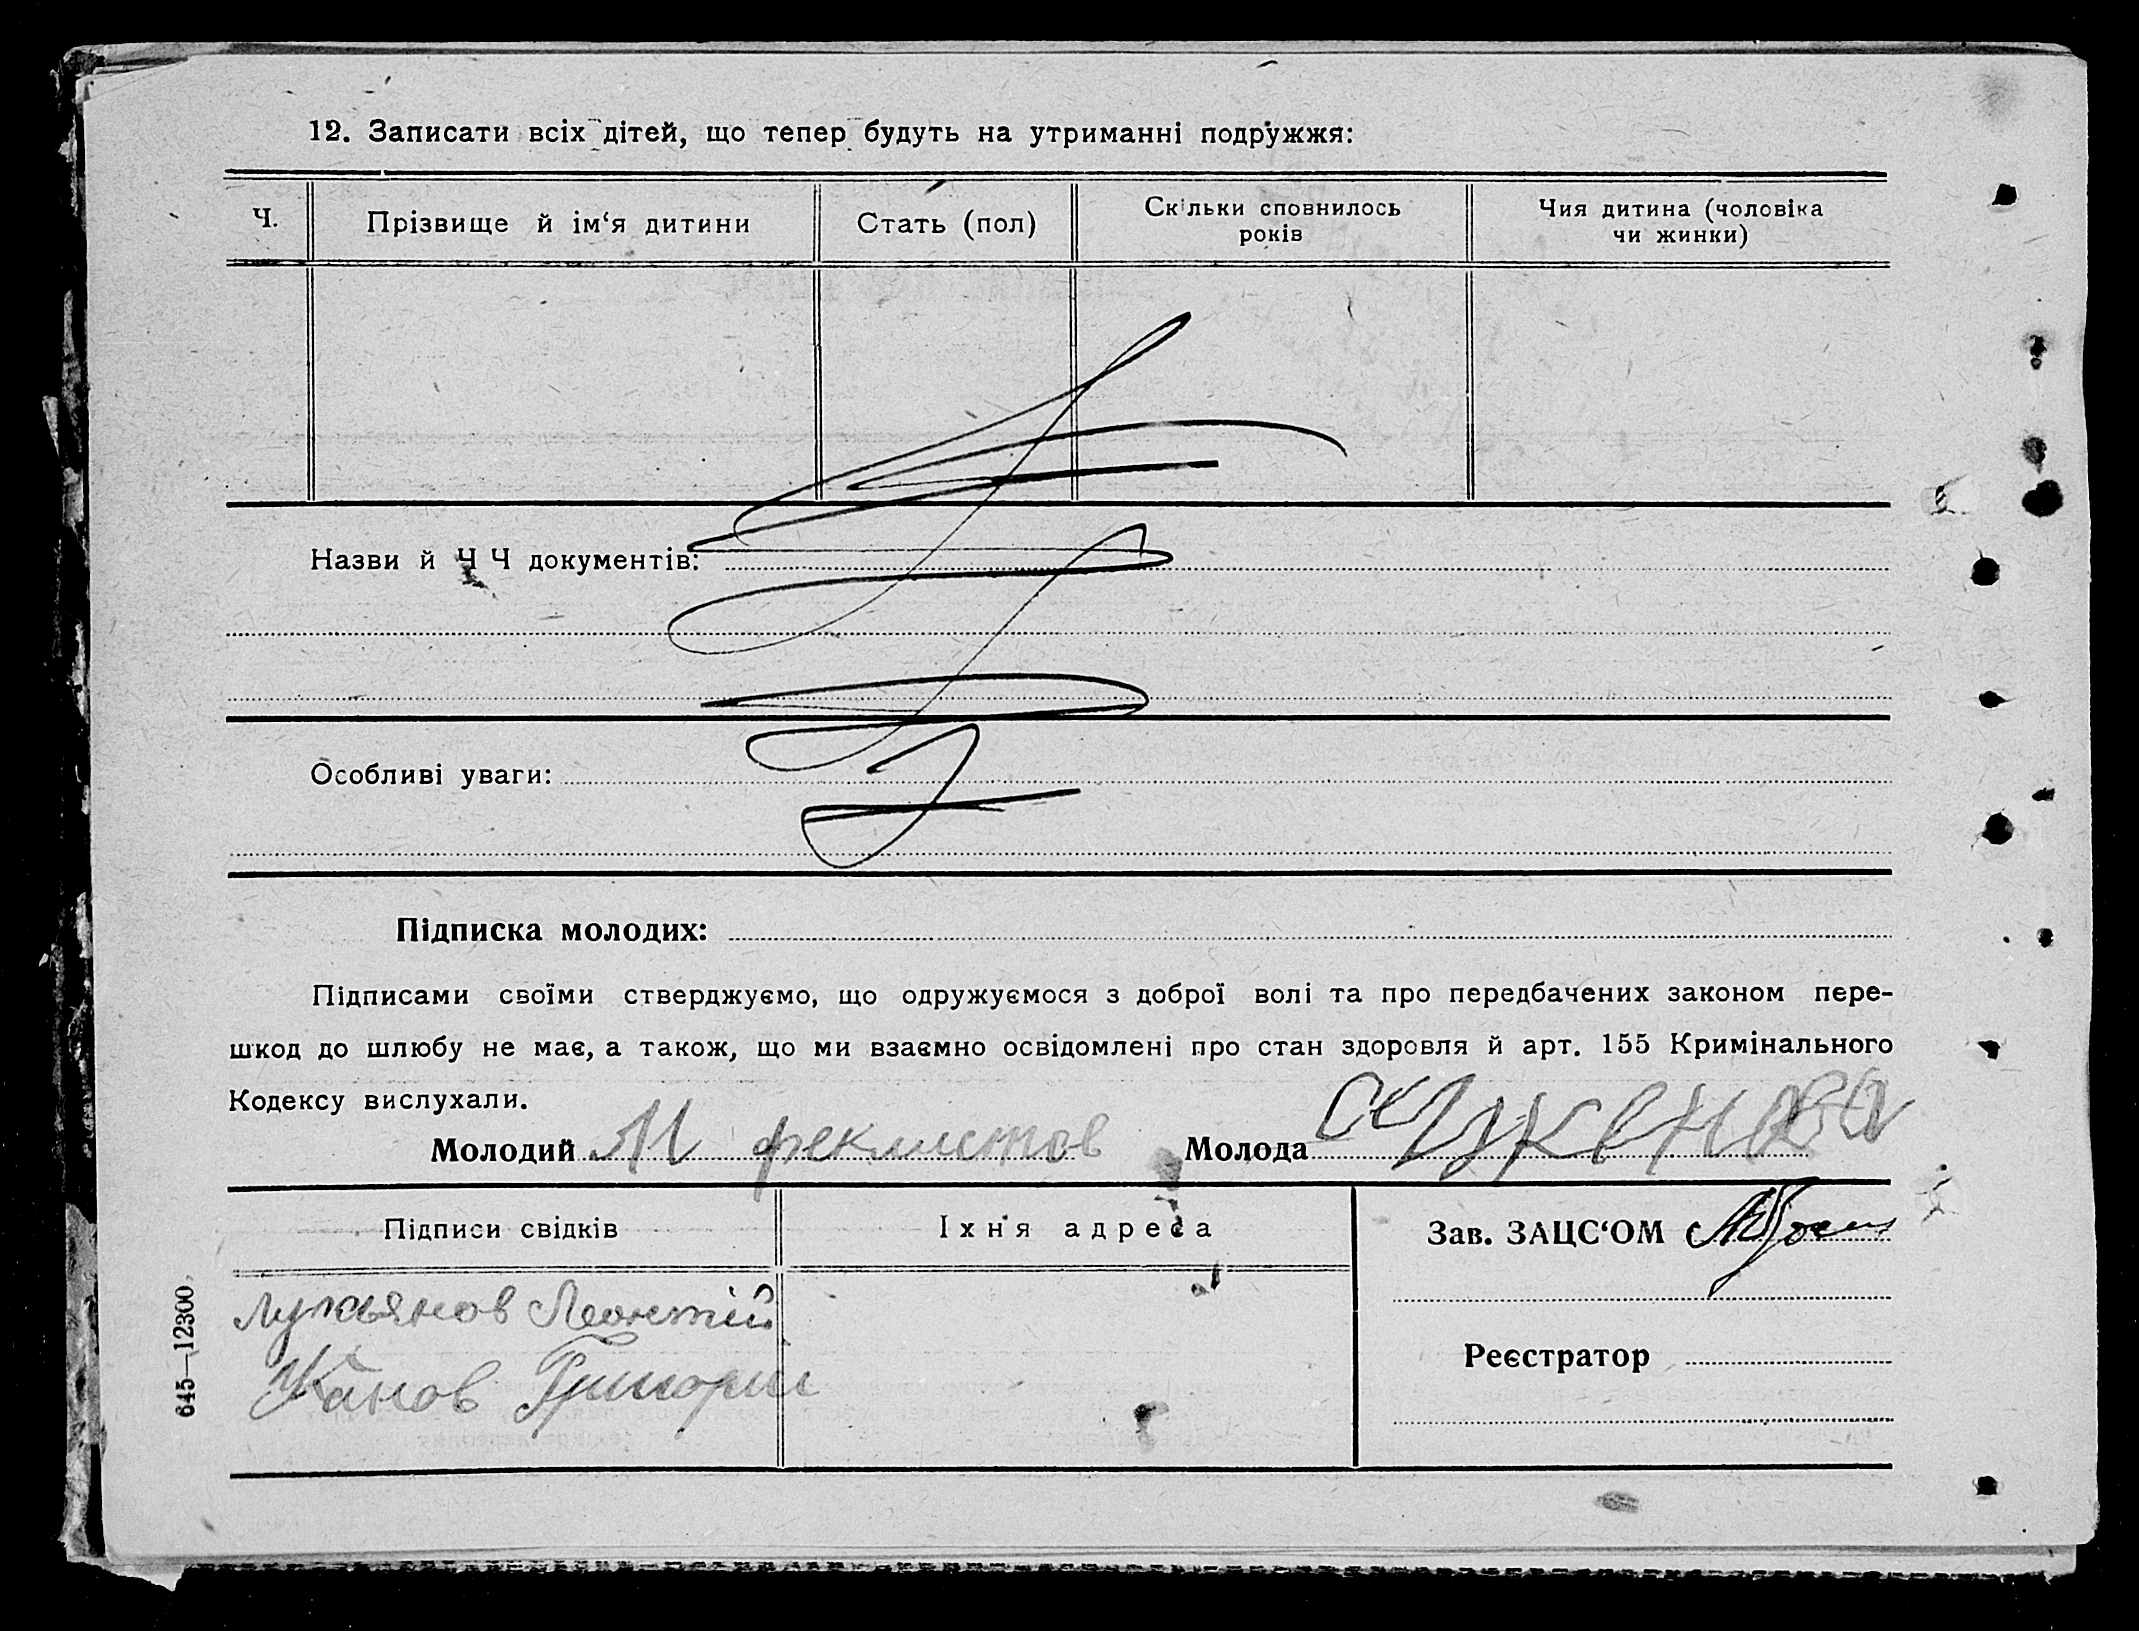 12. Записати всіх дітей, що тепер будуть на утриманні подружжя:
Ч. Прізвище й ім‘я дитини Стать (пол) Скільки сповнилось років Чия дитина (чоловіка чи жинки)
Назви й Ч Ч документів:
Особливі уваги:
Підписка молодих:
Підписами своїми стверджуємо, що одружуємося з доброї волі та про передбачених законом пере-
шкод до шлюбу не має, а також, що ми взаємно освідомлені про стан здоровля й арт. 155 Кримінального
Кодексу вислухали.
Молодий М феклистов Молода
Підписи свідків Їхня адреса Зав. ЗАЦС‘ОМ
Лукьянов Леонтій
Реєстратор
Жанов Григорій
645—12300